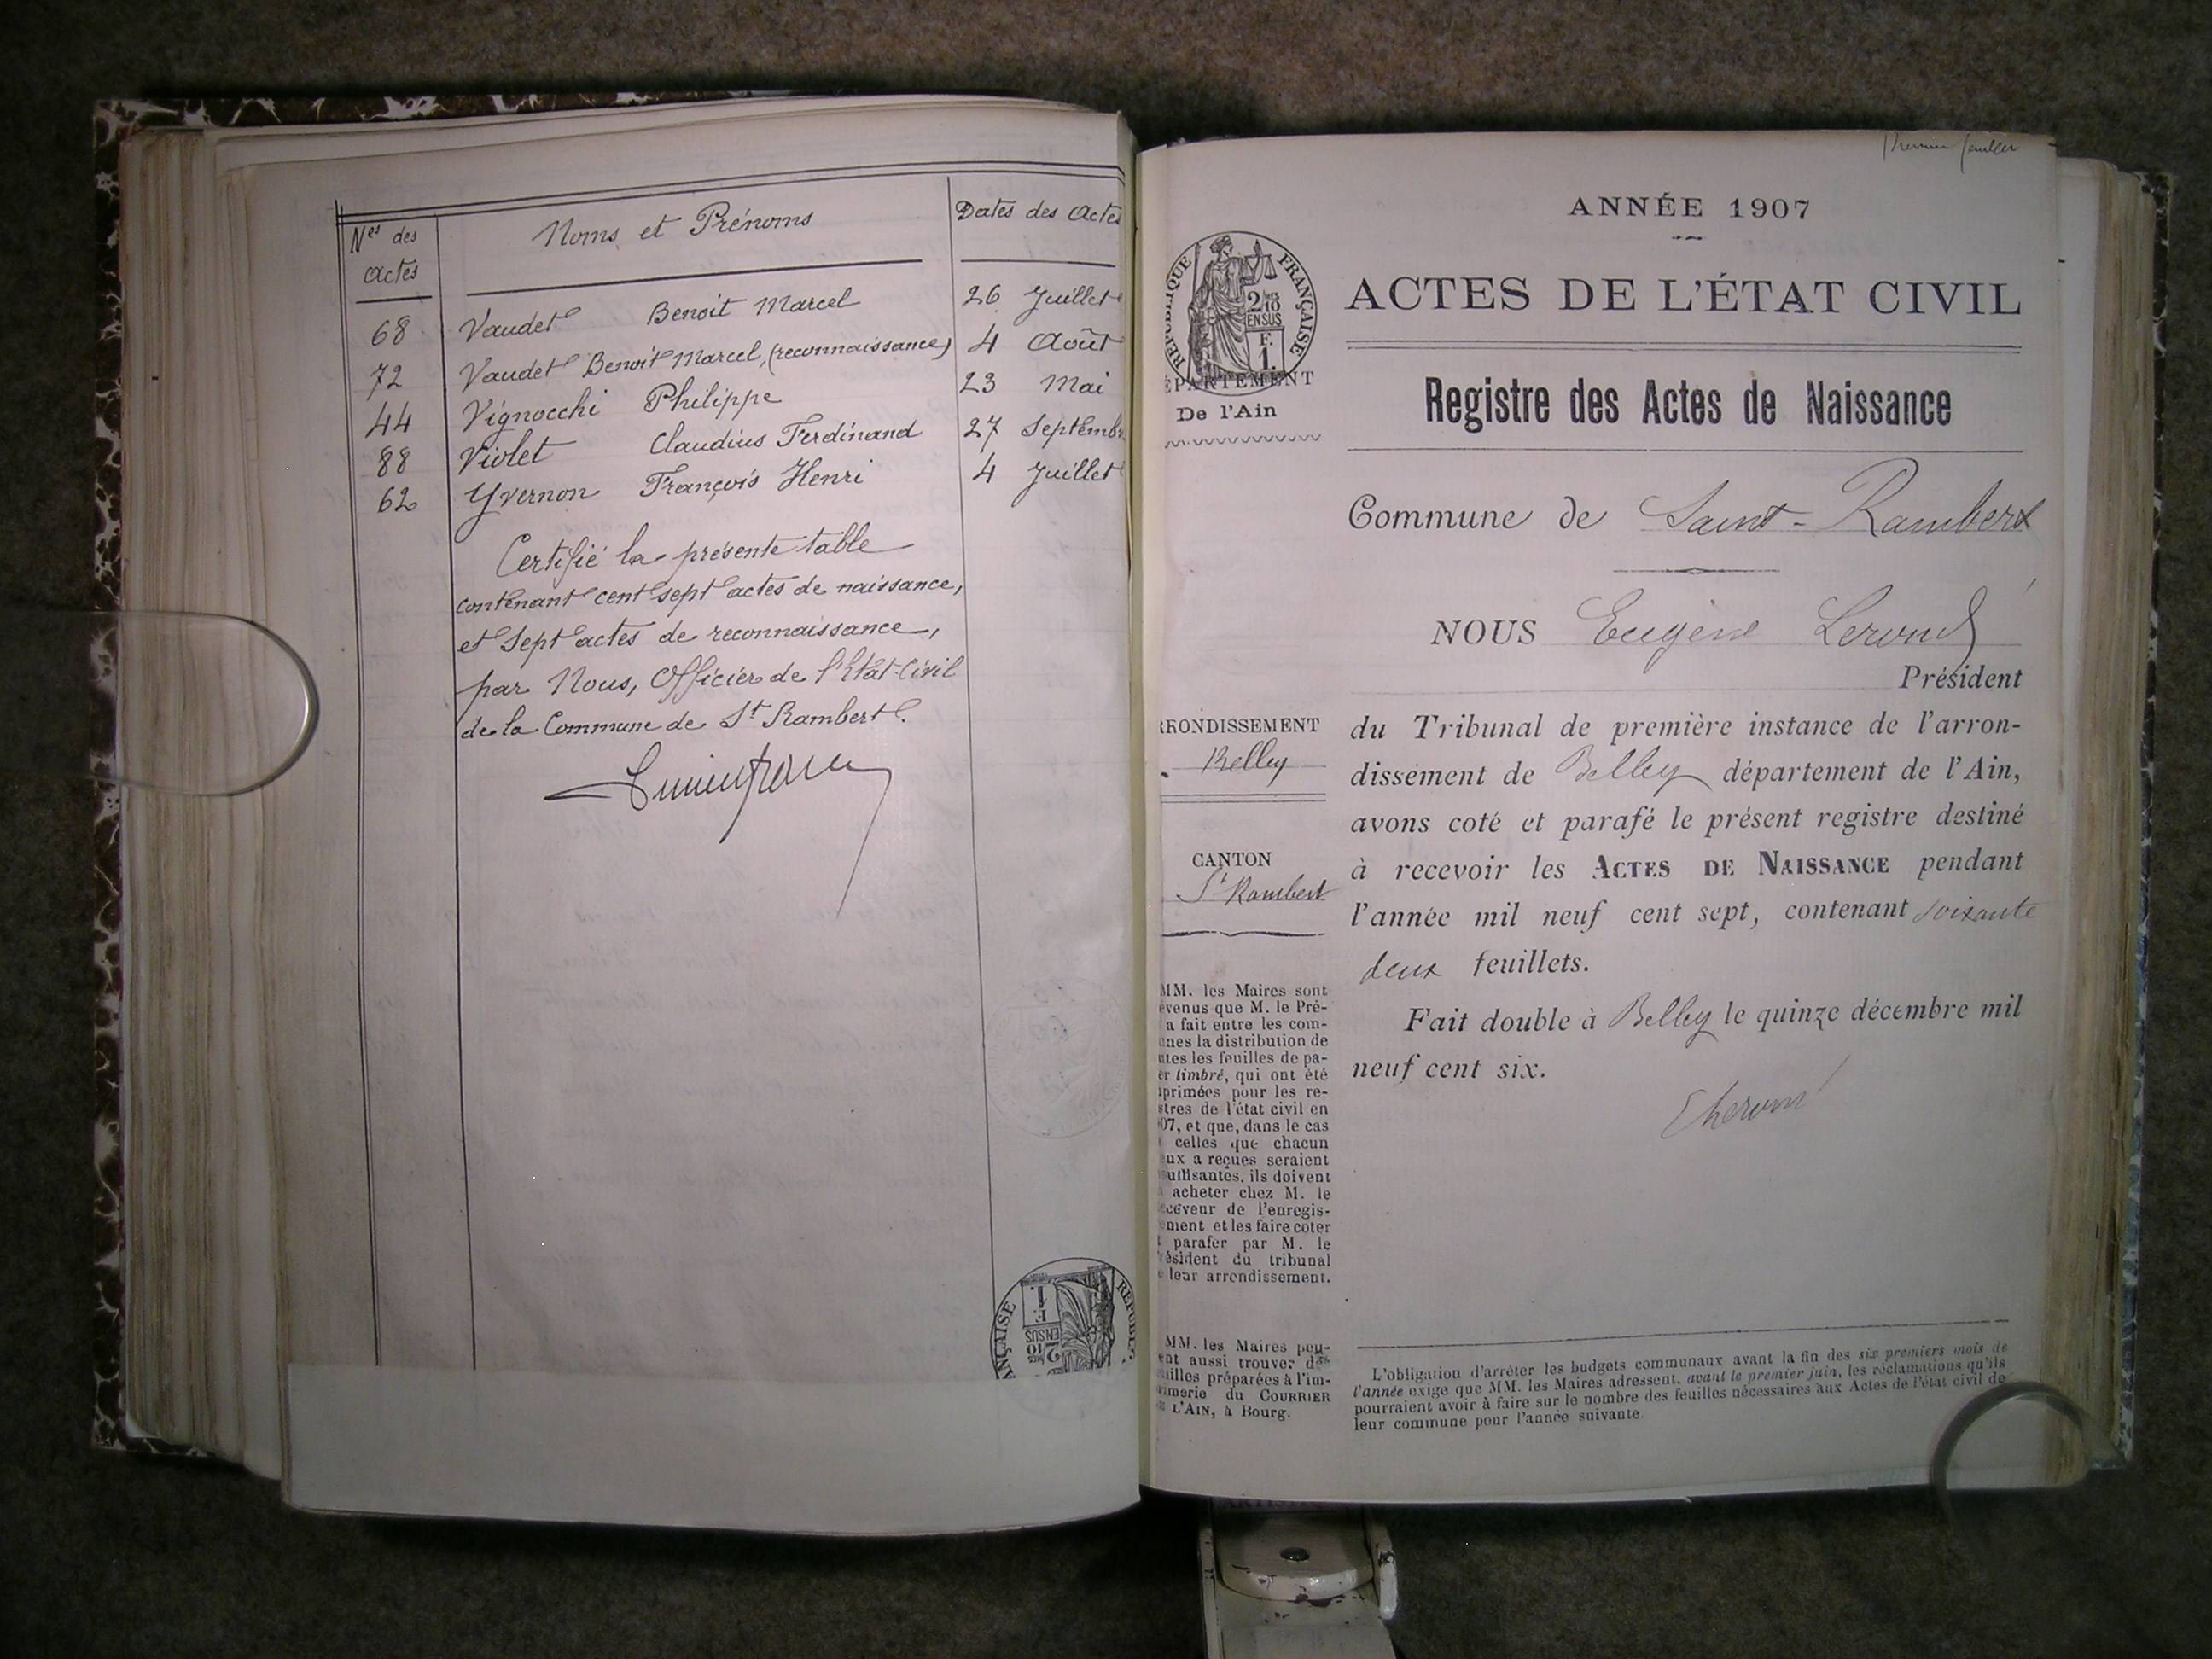 Nos des actes
Noms et Prénoms
Dates des Actes
68 Vaudet Benoit Marcel 26 Juillet
72 Vaudet Benoit Marcel, (reconnaissance) 4 Août
44 Vignocchi Philippe 23 Mai
88 Violet Claudius Ferdinand 27 Septemb
62 Yvernon François Henri 4 Juillet
Certifié la présente table
contenant cent sept actes de naissance,
et sept actes de reconnaissance,
par Nous, Officier de l'Etat-Civil
de la Commune de St Rambert.
Premier feuillet
ANNÉE 1907
RÉPUBLIQUE FRANÇAISE
2/10
EN SUS
F.
1.
ACTES DE L'ÉTAT CIVIL
ÉPARTEMENT
De l'Ain
Registre des Actes de Naissance
Commune de Saint-Rambert
NOUS Eugène
Président
RRONDISSEMENT
Belley
du Tribunal de première instance de l'arron-
dissement de Belley département de l'Ain,
avons coté et parafé le présent registre destiné
CANTON
St Rambert
à recevoir les ACTES DE NAISSANCE pendant
l'année mil neuf cent sept, contenant soixante
deux feuillets.
Fait double à Belley le quinze décembre mil
neuf cent six.
MM. les Maires sont
évenus que M. le Pré-
a fait entre les com-
unes la distribution de
utes les feuilles de pa-
er timbré, qui ont été
primées pour les re-
stres de l'état civil en
07, et que, dans le cas
celles que chacun
eux a reçues seraient
suffisantes, ils doivent
acheter chez M. le
eceveur de l'enregis-
ement et les faire coter
parafer par M. le
résident du tribunal
leur arrondissement.
MM. les Maires peu-
ent aussi trouver des
uilles préparées à l'im-
rimerie du COURRIER
L'AIN, à Bourg.
L'obligation d'arrêter les budgets communaux avant la fin des six premiers mois de
l'année exige que MM. les Maires adressent, avant le premier juin, les réclamations qu'ils
pourraient avoir à faire sur le nombre des feuilles nécessaires aux Actes de l'état civil de
leur commune pour l'année suivante.